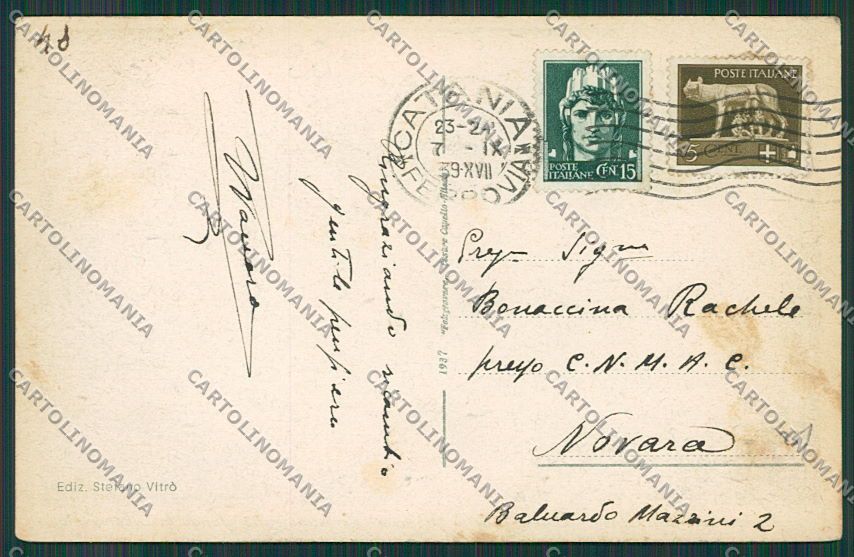 48
CATANIA
23-24
7 - IX
39-XVII
FERROVIA
POSTE ITALIANE CEN. 15
POSTE ITALIANE
5 CENT.
Ringraziando ricambio
gentile pensiero
Preg. Sigra
Bonaccina Rachele
presso C. N. M. A. C.
Novara
Baluardo Mazzini 2
1937
Ediz. Stefano Vitrò
CARTOLINOMANIA